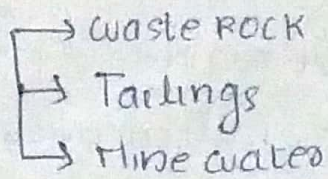 → waste ROCK
→ Tailings
→ Mine water